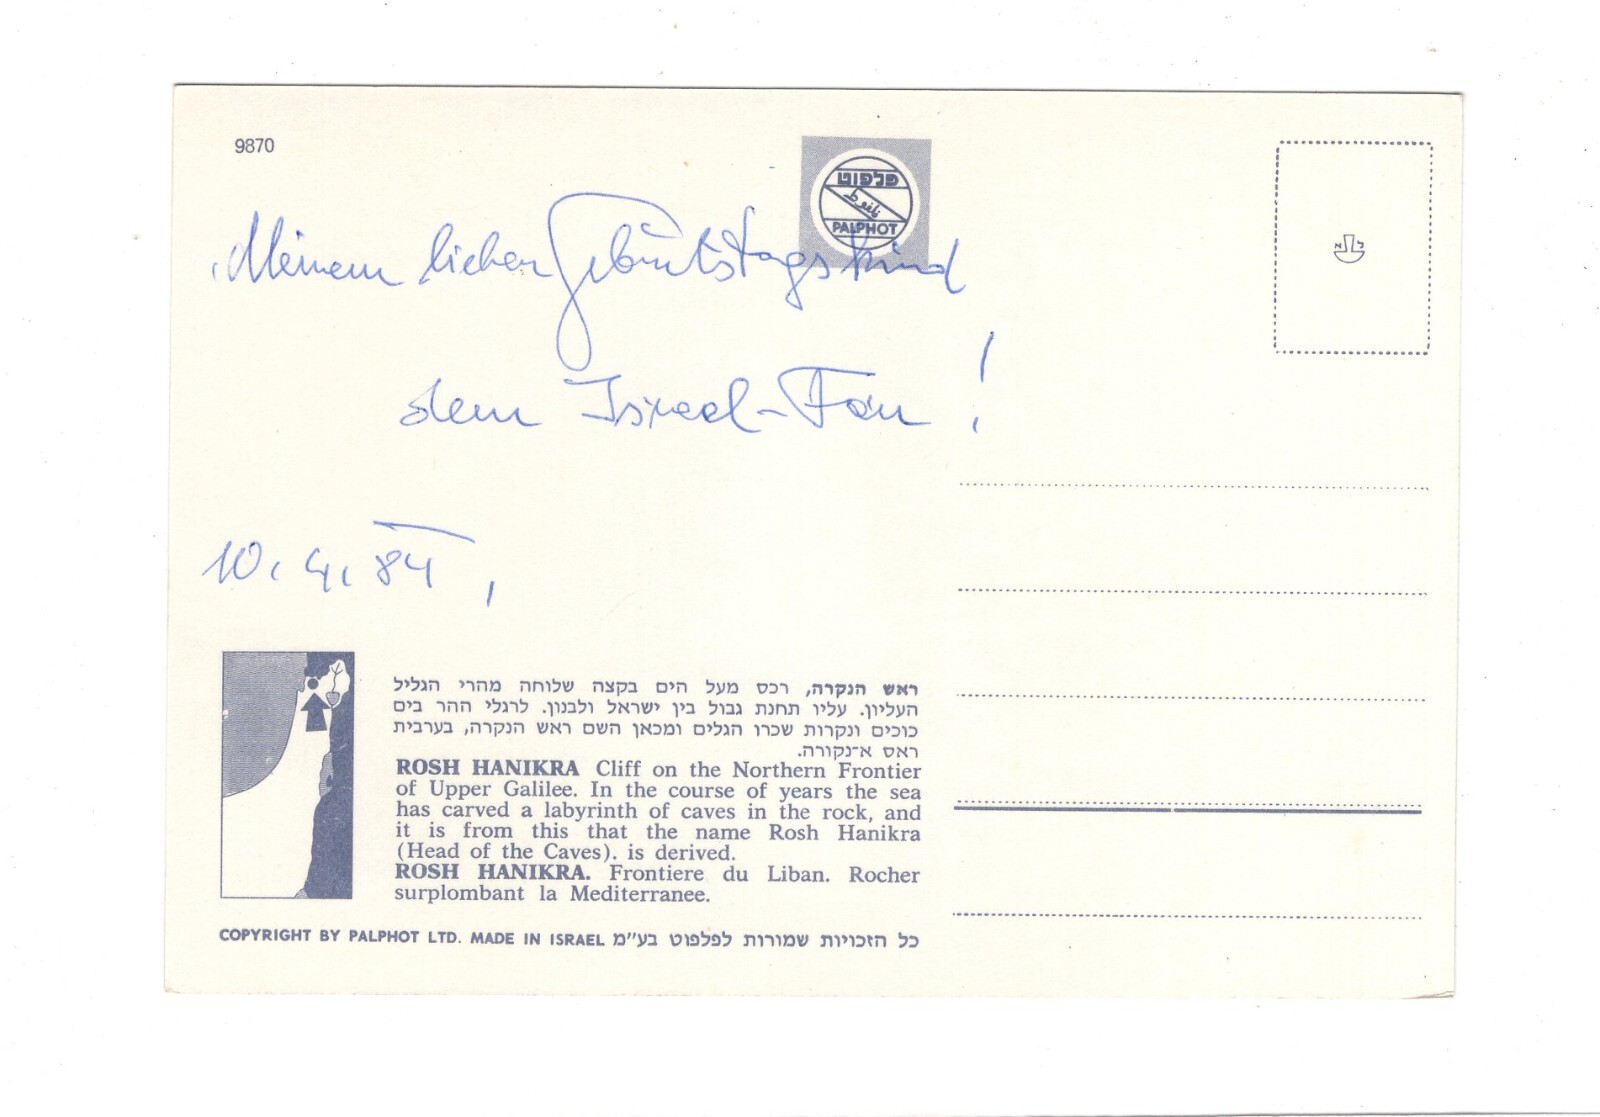 9870
פלפוט
PALPHOT
Meinem lieben Geburtstagskind
dem Israel-Fan!
10. 4. 84
ראש הנקרה, רכס מעל הים בקצה שלוחה מהרי הגליל
העליון. עליו תחנת גבול בין ישראל ולבנון. לרגלי ההר בים
כוכים ונקרות שכרו הגלים ומכאן השם ראש הנקרה, בערבית
ראס א־נקורה.
ROSH HANIKRA Cliff on the Northern Frontier
of Upper Galilee. In the course of years the sea
has carved a labyrinth of caves in the rock, and
it is from this that the name Rosh Hanikra
(Head of the Caves). is derived.
ROSH HANIKRA. Frontiere du Liban. Rocher
surplombant la Mediterranee.
COPYRIGHT BY PALPHOT LTD. MADE IN ISRAEL כל הזכויות שמורות לפלפוט בע״מ